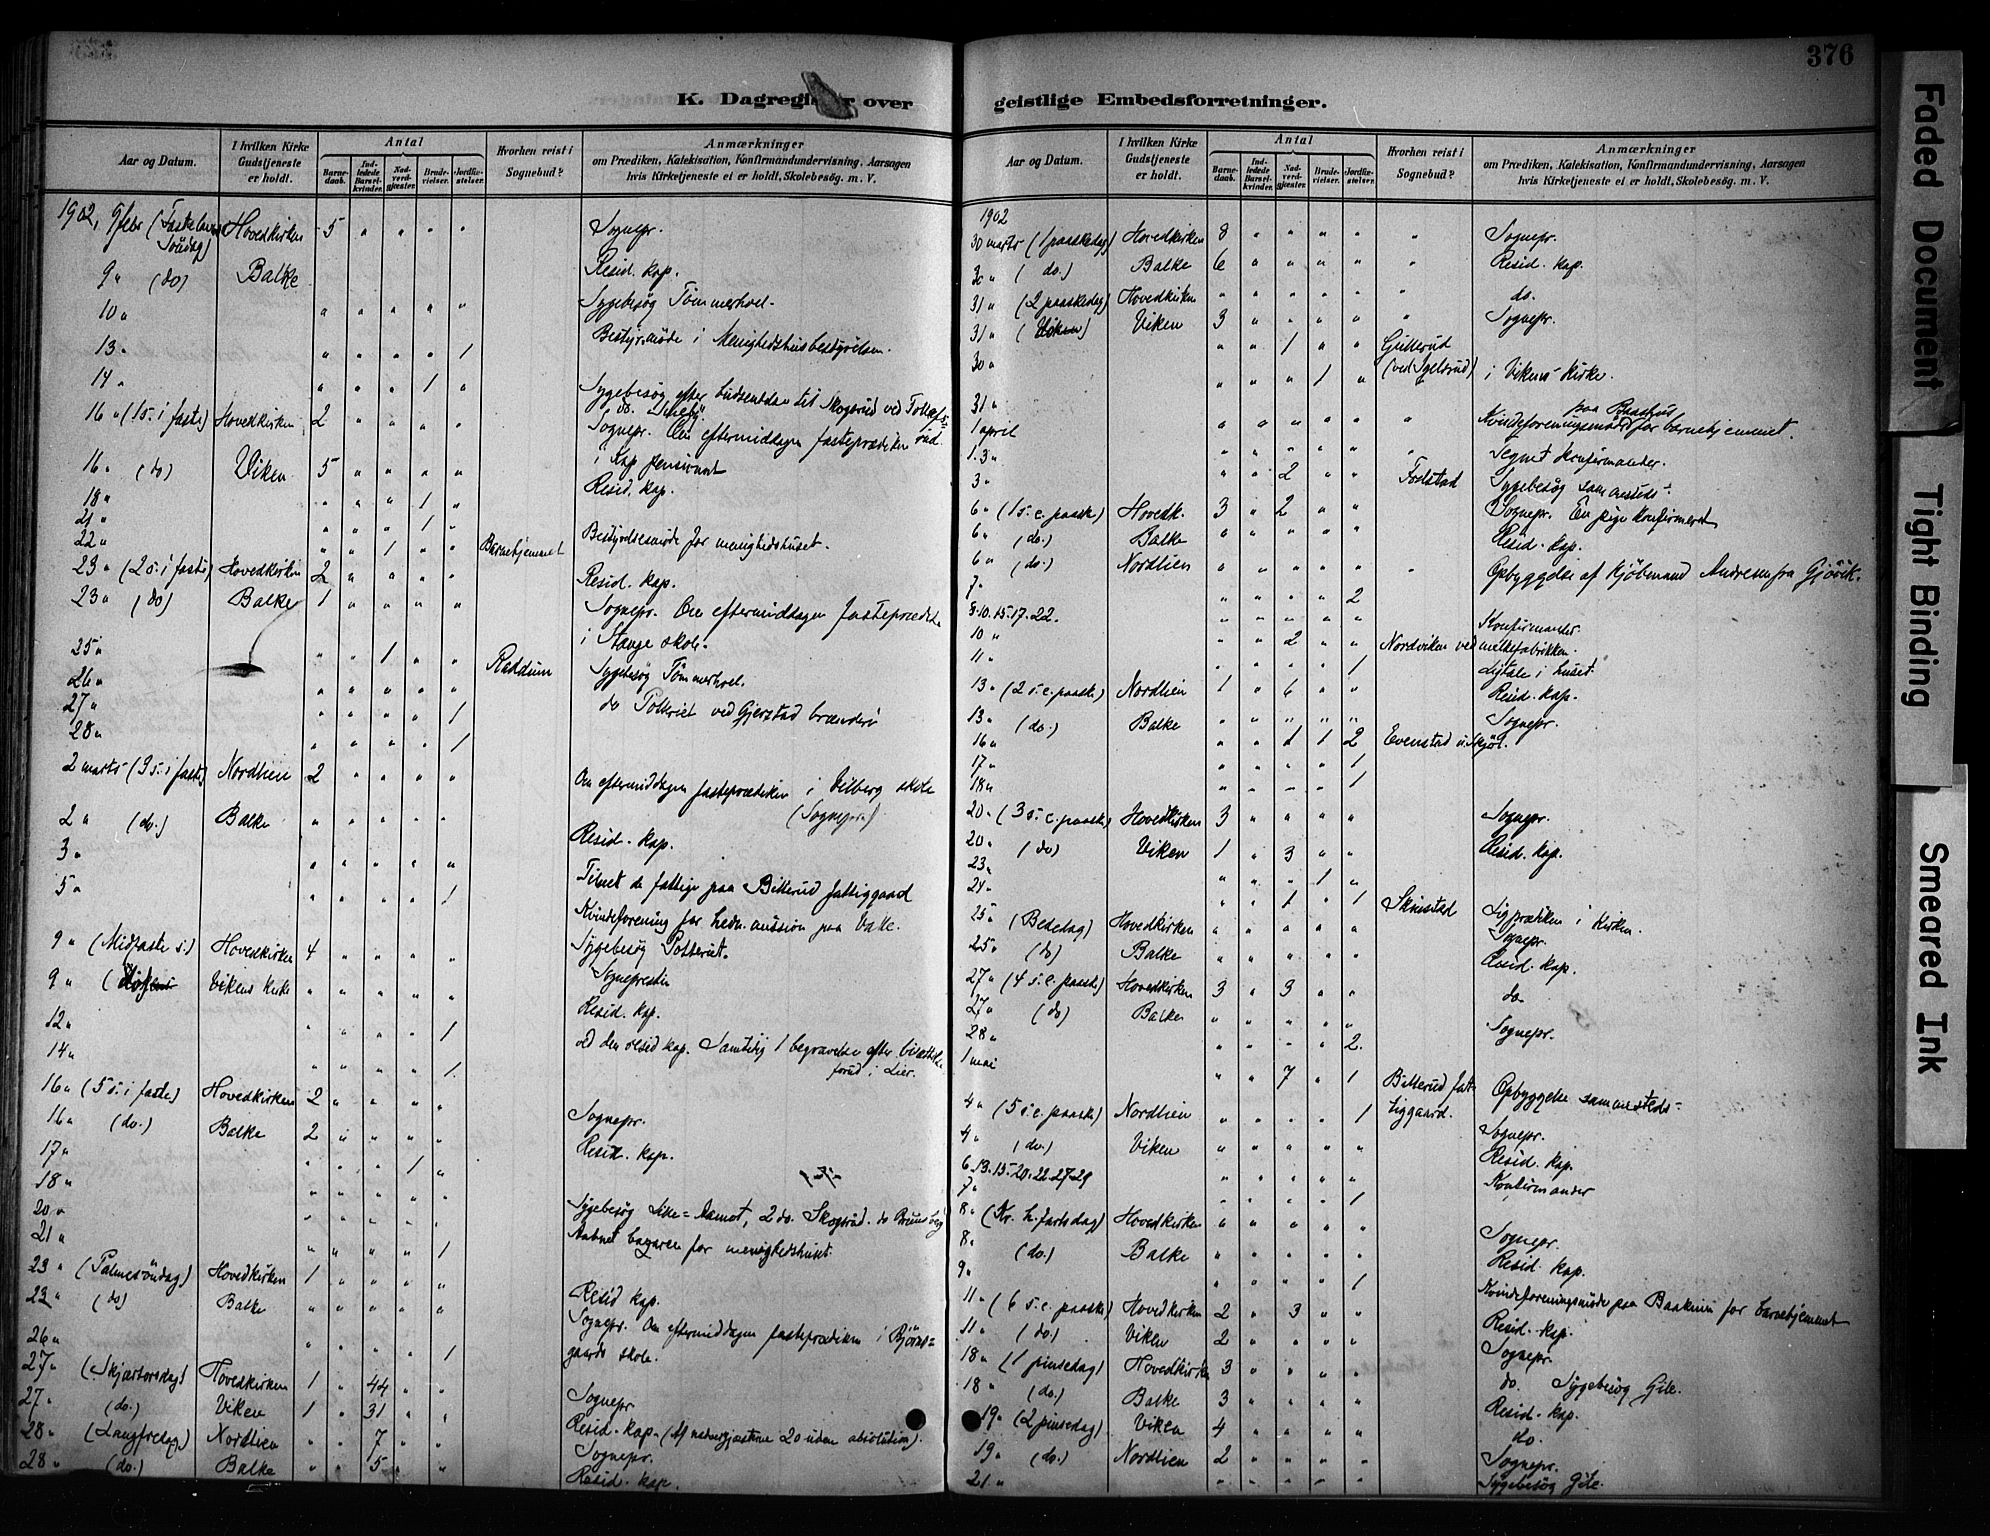 376
K. Dagregister over geistlige Embedsforretninger.
Aar og Datum.
I hvilken Kirke Gudstjeneste er holdt.
Antal
Barnedaab.
Indledede Barselkvinder.
Nadverdgjester.
Brudevielser.
Jordfæstelser.
Hvorhen reist i Sognebud?
Anmærkninger
om Prædiken, Katekisation, Konfirmandundervisning, Aarsagen
hvis Kirketjeneste ei er holdt, Skolebesøg. m. V.
1902, 9 febr (Fastelavns Söndag) Hovedkirken 5 " " " " Sognepr.
9 " (do) Balke Resid. kap.
10 " " " " " " Sygebesøg Tömmerhoel.
Bestyr.möde i Menighedshusbestyrelsen.
13 " " " " " 1
14 " " " " 1 " Sygebesøg efter budsendelse til Skogsrud ved
16 " (1 s. i faste) Hovedkirken 2 " " " " Sognepr. Om eftermiddagen fasteprædiken ved
16 " (do) Viken 5 " " " " Resid. kap.
18 " " " " 1 "
21 " " " " 1 " Bestyrelsesmöde for menighedshuset.
22 " " " 1 " " Barnehjemmet
23 " (2 s. i faste) Hovedkirken 2 " " " " Resid. kap.
23 " (do) Balke 1 " " " " Sognepr. Om eftermiddagen fasteprædiken
i Stange skole.
25 " " " 1 " " Raddum Sygebesøg Tömmerhoel.
26 " " " " " " do ved Gjerstad brænderi
27 " " " " " 1
28 " " " " " 1
2 marts (3 s. i faste) Nordlien 2 " " " " Om eftermiddagen fasteprædiken i Vilberg skole
(Sognepr.)
2 " (do.) Balke " " " " " Resid. kap.
3 " " " " " " de fattige paa Bitterud fattiggaard
5 " " " " " 1 Kvindeforening for hedn. mission paa
9 " (Midfaste s.) Hovedkirken 4 " " " " Sygebesøg Potterud.
Sognepresten
9 " Vikens kirke " " " " " Resid. kap.
12 " " " " " 1 ved den resid kap. Samtidig 1 begravelse efter
14 " " " " " 1 forud i Lier.
16 " (5 s. i faste) Hovedkirken 2 " " " " Sognepr.
16 " (do.) Balke 2 " " " " Resid. kap.
17 " " " " 1 "
18 " " " " " "
20 " " " " " " Sygebesøg 2 do. Skogsrud. do
21 " " " " " 1 Aabnet bazaren for menighedshuset.
23 " (Palmesöndag) Hovedkirken 1 " " " " Resid kap.
23 " (do) Balke " " " " " Sognepr. Om eftermiddagen fasteprædiken i Björns=
26 " " " " " 1 gaards skole.
27 " (Skjærtorsdag) Hovedkirken 1 " 44 " " Sognepr
27 " (do.) Viken 1 " 31 " " Resid. kap. (Af nadvergjæsterne 20 uden absolution).
28 " (Langfredag) Nordlien " " 7 " " Sognepr.
28 " (do.) Balke " " 5 " " Resid. kap.
Aar og Datum.
I hvilken Kirke Gudstjeneste er holdt.
Antal
Barnedaab.
Indledede Barselkvinder.
Nadverdgjester.
Brudevielser.
Jordfæstelser.
Hvorhen reist i Sognebud?
Anmærkninger
om Prædiken, Katekisation, Konfirmandundervisning, Aarsagen
hvis Kirketjeneste ei er holdt, Skolebesøg. m. V.
1902
30 marts (1 paaskedag) Hovedkirken 8 " " " " " Sognepr.
30 " (do.) Balke 6 " " " " Resid. kap.
31 " (2 paaskedag) Hovedkirken " " " " " " do.
31 " (Viken) Viken 3 " " " " " Sognepr.
30 " " " 1 " " Gullerud
(ved Sgelsrud)
31 " " " " 1 " i Vikens kirke.
1 april " " " " " " Kvindeforeningsmöde paa Baashus for barnehjemmet.
1. 3 " " " " " " " Tegnet konfirmander.
3 " " " 2 " " Fodstad Sygebesøg sammesteds.
6 " (1 s. e. paaske) Hovedk. 3 " 2 " " Sognepr. En pige konfirmeret
6 " (do.) Balke " " " " " Resid. kap.
6 " (do.) Nordlien " " " " " " Opbyggelse af kjöbmand Andresen fra Gjövik.
7 " " " " " 2
8. 10. 15. 17. 22. " " " " " Konfirmander
10 " " " 2 " " Nordviken ved melkefabrikken.
11 " " " " " 1 Ligtale i huset.
13 " (2 s. e. paaske) Nordlien 1 " 6 " " Resid. kap.
13 " (do.) Balke " " " " " Sognepr.
16 " " " 1 1 2 Evenstad
17 " " " " " 1
18 " " " " " 1
20 " (3 s. e. paaske) Hovedkirken 3 " " " " Sognepr.
20 " (do) Viken 1 " 3 " " Resid. kap.
23 " " " " 1 "
24 " " " 1 " 1 Skinstad Ligprædiken i kirken.
25 " (Bededag) Hovedkirken " " " " " Sognepr.
25 " (do) Balke " " " " " Resid. kap.
27 " (4 s. e. paaske) Hovedkirken 3 " 3 " " do
27 " (do) Balke " " " " " Sognepr.
28 " " " " " 2.
1 mai " " 7 " 1 Bitterud fat=
tiggaard. Opbyggelse sammesteds.
4 " (5 s. e. paaske) Nordlien " " " " 1 Sognepr.
4 " (do.) Viken " " " " " Resid. kap.
6. 13. 15. 20. 22. 27. 29 " " " " " Konfirmander
7 " " " " " 1
8 " (Kr. h. fartsdag) Hovedkirken " " " " " Sognepr.
8 " (do.) Balke " " " " " Resid. kap.
9 " " " " " 1 Kvindeforeningsmöde paa for barnehjemmet
11 " (6 s. e. paaske) Hovedkirken 2 " 3 " " Resid. kap.
11 " (do.) Viken 2 " " " " Sognepr.
18 " (1 pinsedag) Hovedkirken 3 " " " " do. Sygebesøg Gile.
18 " (do.) Balke 3 " " " " Resid. kap.
19 " (2 pinsedag) Viken 4 " " " " do.
19 " (do.) Nordlien 2 " " " " Sognepr.
21 " " " " " " Sygebesøg Gile.
Faded Document
Tight Binding
Smeared Ink